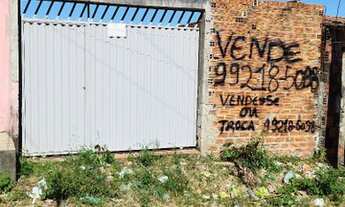 VENDE
992185098
VENDESSE
OU
TROCA 992185098